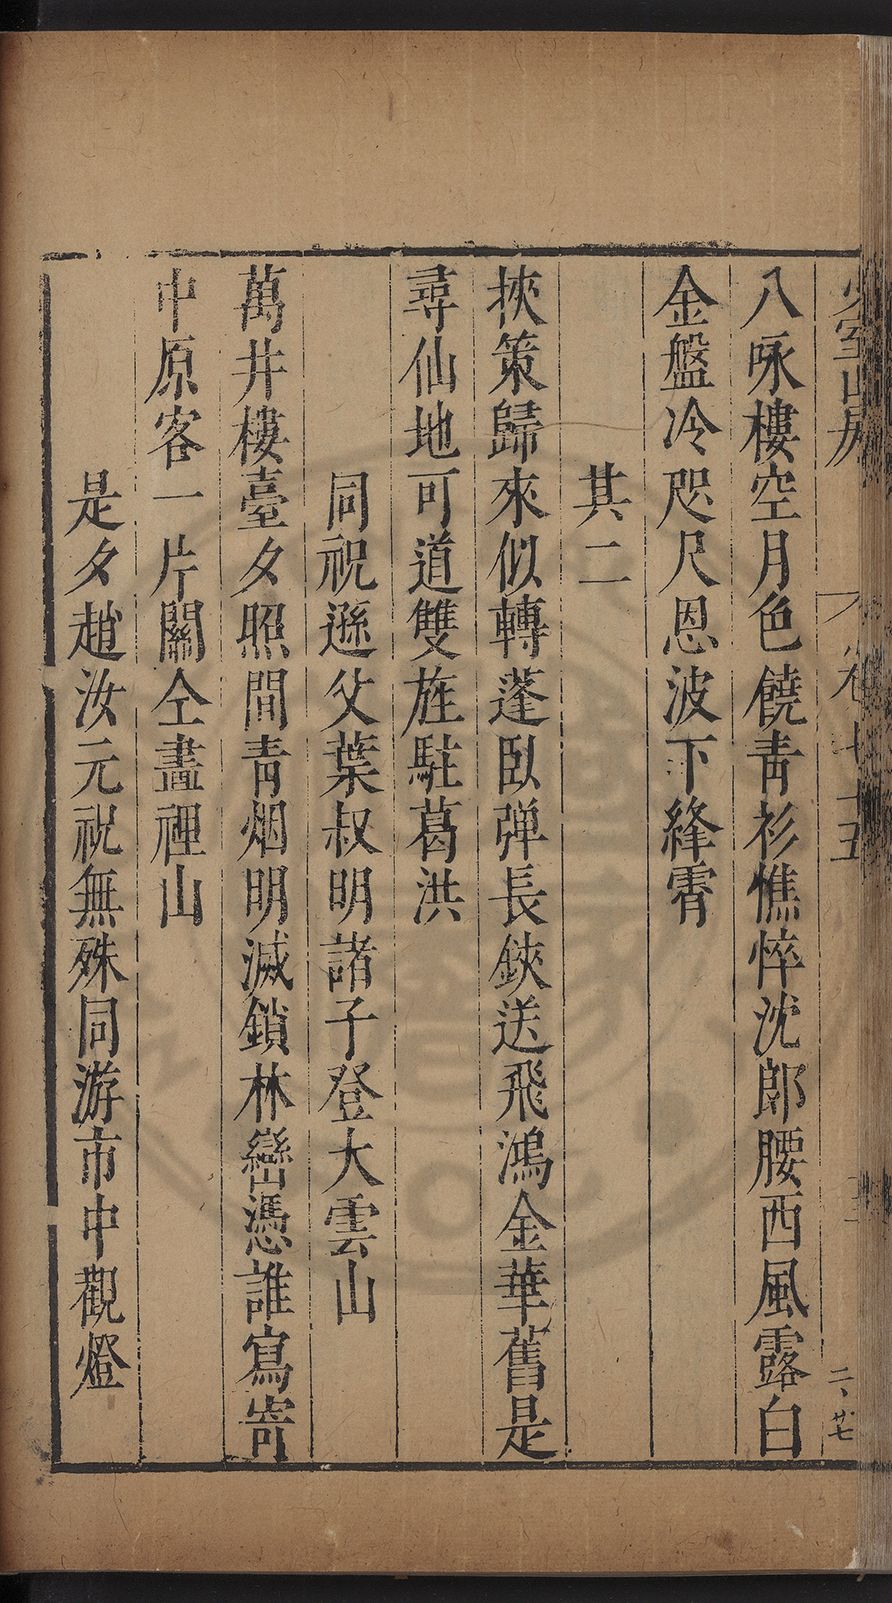 少室山房
卷七十五
二、廿七
八咏樓空月色饒青衫憔悴沈郎腰西風露白
金盤冷咫尺恩波下絳霄
其二
挾策歸來似轉蓬臥弹長鋏送飛鴻金華舊是
尋仙地可道雙旌駐葛洪
同祝遜父葉叔明諸子登大雲山
萬井樓臺夕照間青烟明滅鎖林巒憑誰寫寄
中原客一片關仝畫裡山
是夕趙汝元祝無殊同游市中觀燈